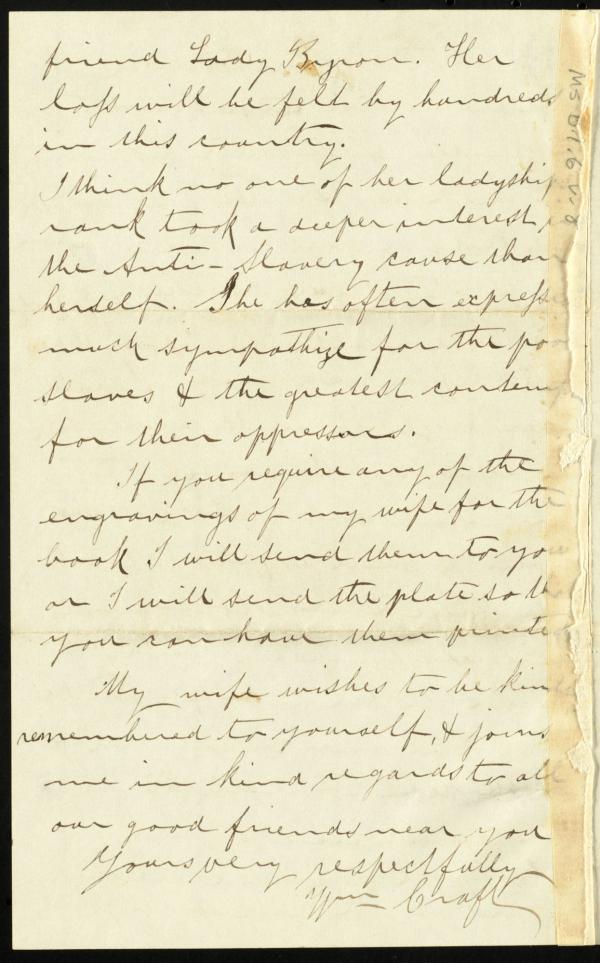 friend Lady Byron. Her
loss will be felt by hundreds
in this country.
I think no one of her ladyship
rank took a deeper interest
the Anti-Slavery cause than
herself. She has often express
much sympathize for the poo
slaves & the greatest contemp
for their oppressors.
If you require any of the
engravings of my wife for the
book I will send them to you
or I will send the plate so th
you can have them printed
My wife wishes to be kind
remembered to yourself, & joins
me in kind regards to all
our good friends near you
Yours very respectfully
Wm Craft
MS B.1.6 v. 8